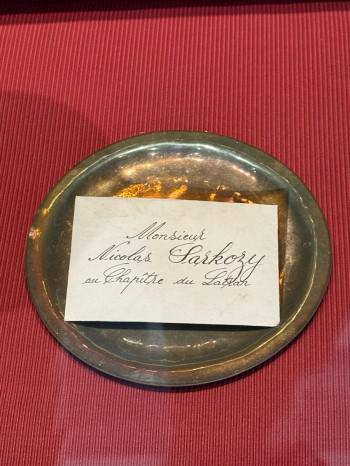 Monsieur
Nicolas Sarkozy
au Chapître du Latran